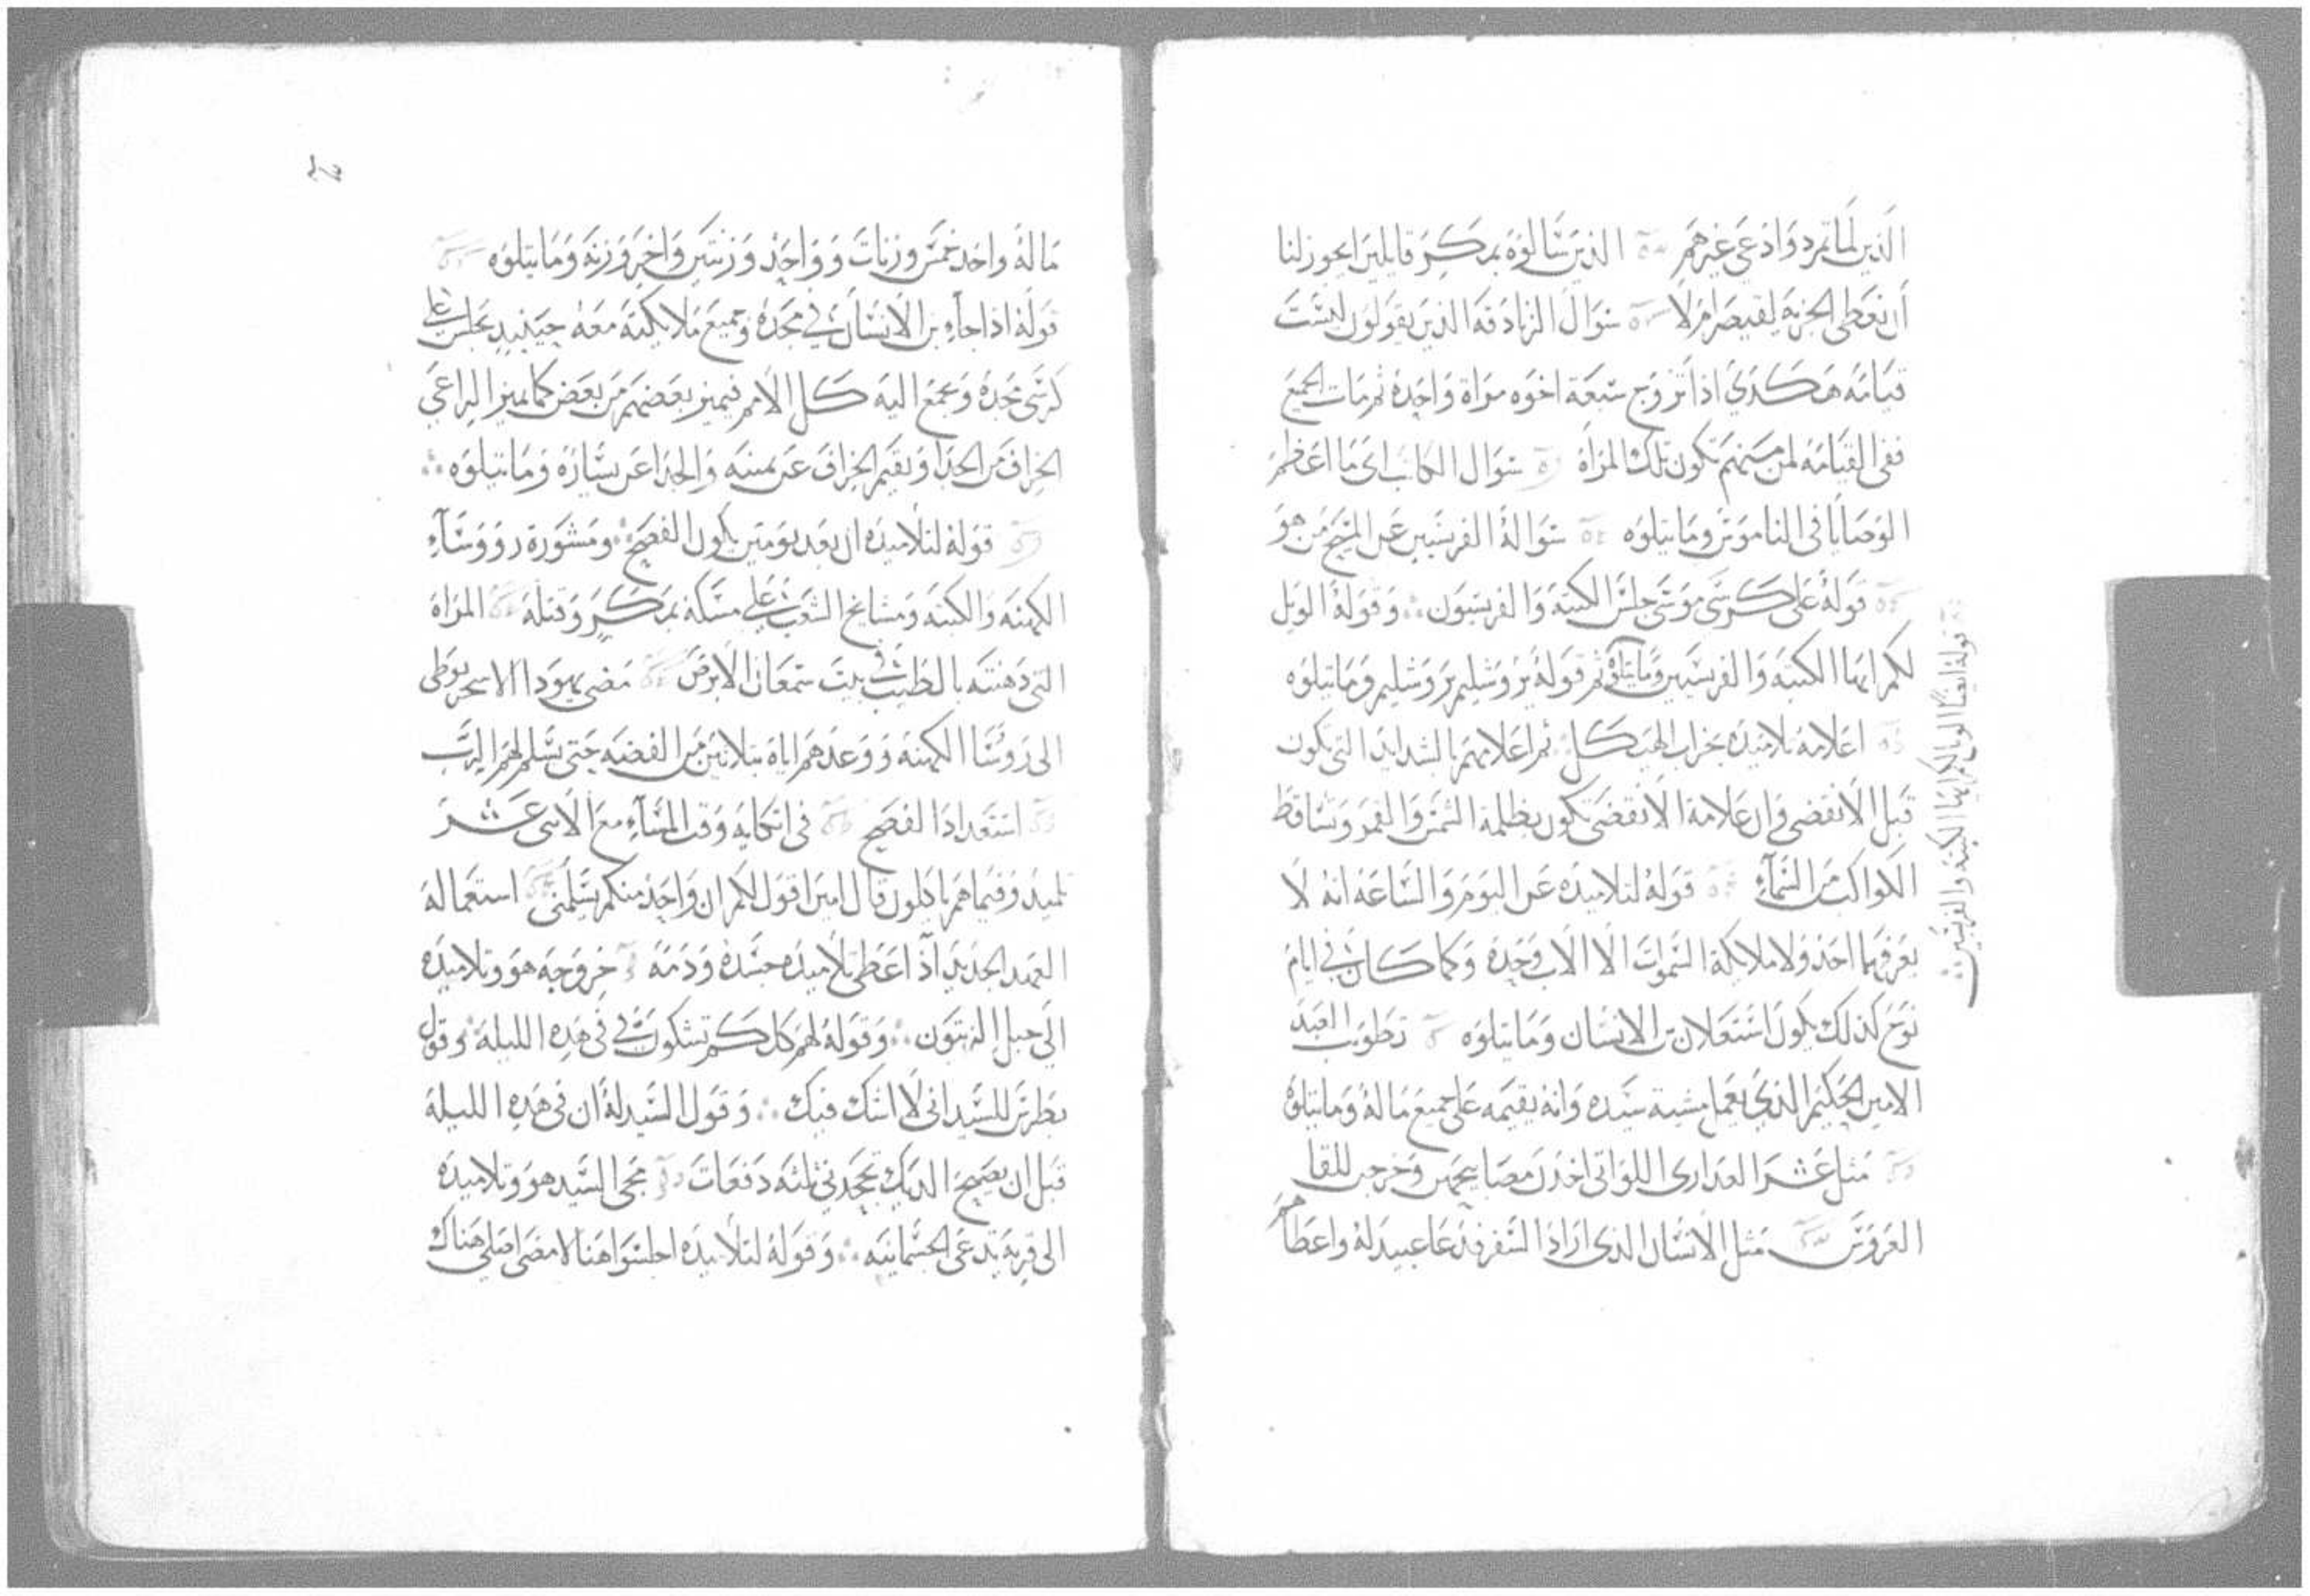 الذين لما تمرد وادعى غيرهم الذين سالوه بمكر قايلين ايجوز لنا
ان نعطى الجزية لقيصر ام لا سوال الزنادقه الذين يقولون ليست
قيامه هكذى اذا تزوج سبعة اخوه مراة واحده ثم مات الجميع
ففى القيامه لمن منهم تكون تلك المراة سوال الكاتب اى ما اعظم
الوصايا فى الناموس وما يتلوه سوالة الفريسيين عن المسيح من هو
قولة على كرسى موسى جلس الكتبة والفريسيون ؞ وقولة الويل
لكم ايها الكتبه والفريسيين وما يتلوه ثم قولة يروشليم يروشليم وما يتلوه
اعلامه تلاميده بخراب الهيكل ثم اعلامهم بالشدايد التى تكون
قبل الانقضى وان علامة الانقضى تكون بظلمة الشمس والقمر وتساقط
الكواكب من السمآء قولة لتلاميده عن اليوم والساعه انه لا
يعرفهما احد ولا ملايكة السموات الا الاب وحده وكما كان فى ايام
نوح كذلك يكون استعلان ابن الانسان وما يتلوه تطويب العبد
الامين الحكيم الذي يعمل مشية سيده وانه يقيمه على جميع مالة وما يتلوه
مثل عشر العدارى اللواتى اخدن مصابيحهن وخرجن للقا
العروس مثل الانسان الذى اراد السفر فدعا عبيد له واعطاهم
قولة ايضا الويل لكم ايها الكتبة والفريسيين
ماله واحد خمس وزنات وواحد وزنتين واخر وزنه وما يتلوه
قولة اذا جآء ابن الانسان في مجده وجميع ملايكته معه حينيد يجلس على
كرسى مجده ويجمع اليه كل الامم فيميز بعضهم من بعض كما يميز الراعى
الخراف من الجدا ويقيم الخراف عن يمينه والجدا عن يساره وما يتلوه ؞
قولة لتلاميده ان بعد يومين يكون الفصح ؞ ومشورة رووسآء
الكهنه والكتبه ومشايخ الشعب على مسكه بمكر وقتله المراه
التى دهنته بالطيب فى بيت سمعان الابرص مضى يهودا الاسخريوطى
الى روسا الكهنه ووعدهم اياه بتلاتين من الفضه حتى يسلم لهم الرب
استعداد الفصح فى اتكايه وقت المسآء مع الاتنى عشر
تلميد وفيما هم ياكلون قال امين اقول لكم ان واحد منكم يسلمنى استعماله
العهد الجديد اذ اعطى تلاميده جسده ودمه خروجه هو وتلاميده
الى جبل الزيتون ؞ وقولة لهم كلكم تشكون في فى هده الليلة ؞ وقول
بطرس للسيد انى لا اشك فيك ؞ وقول السيد له ان فى هده الليلة
قبل ان يصيح الديك تجحدني ثلثه دفعات مجى السيد هو وتلاميده
الى قرية تدعى الجسمانيه ؞ وقولة لتلاميده اجلسوا هنا لامضى اصلي هناك